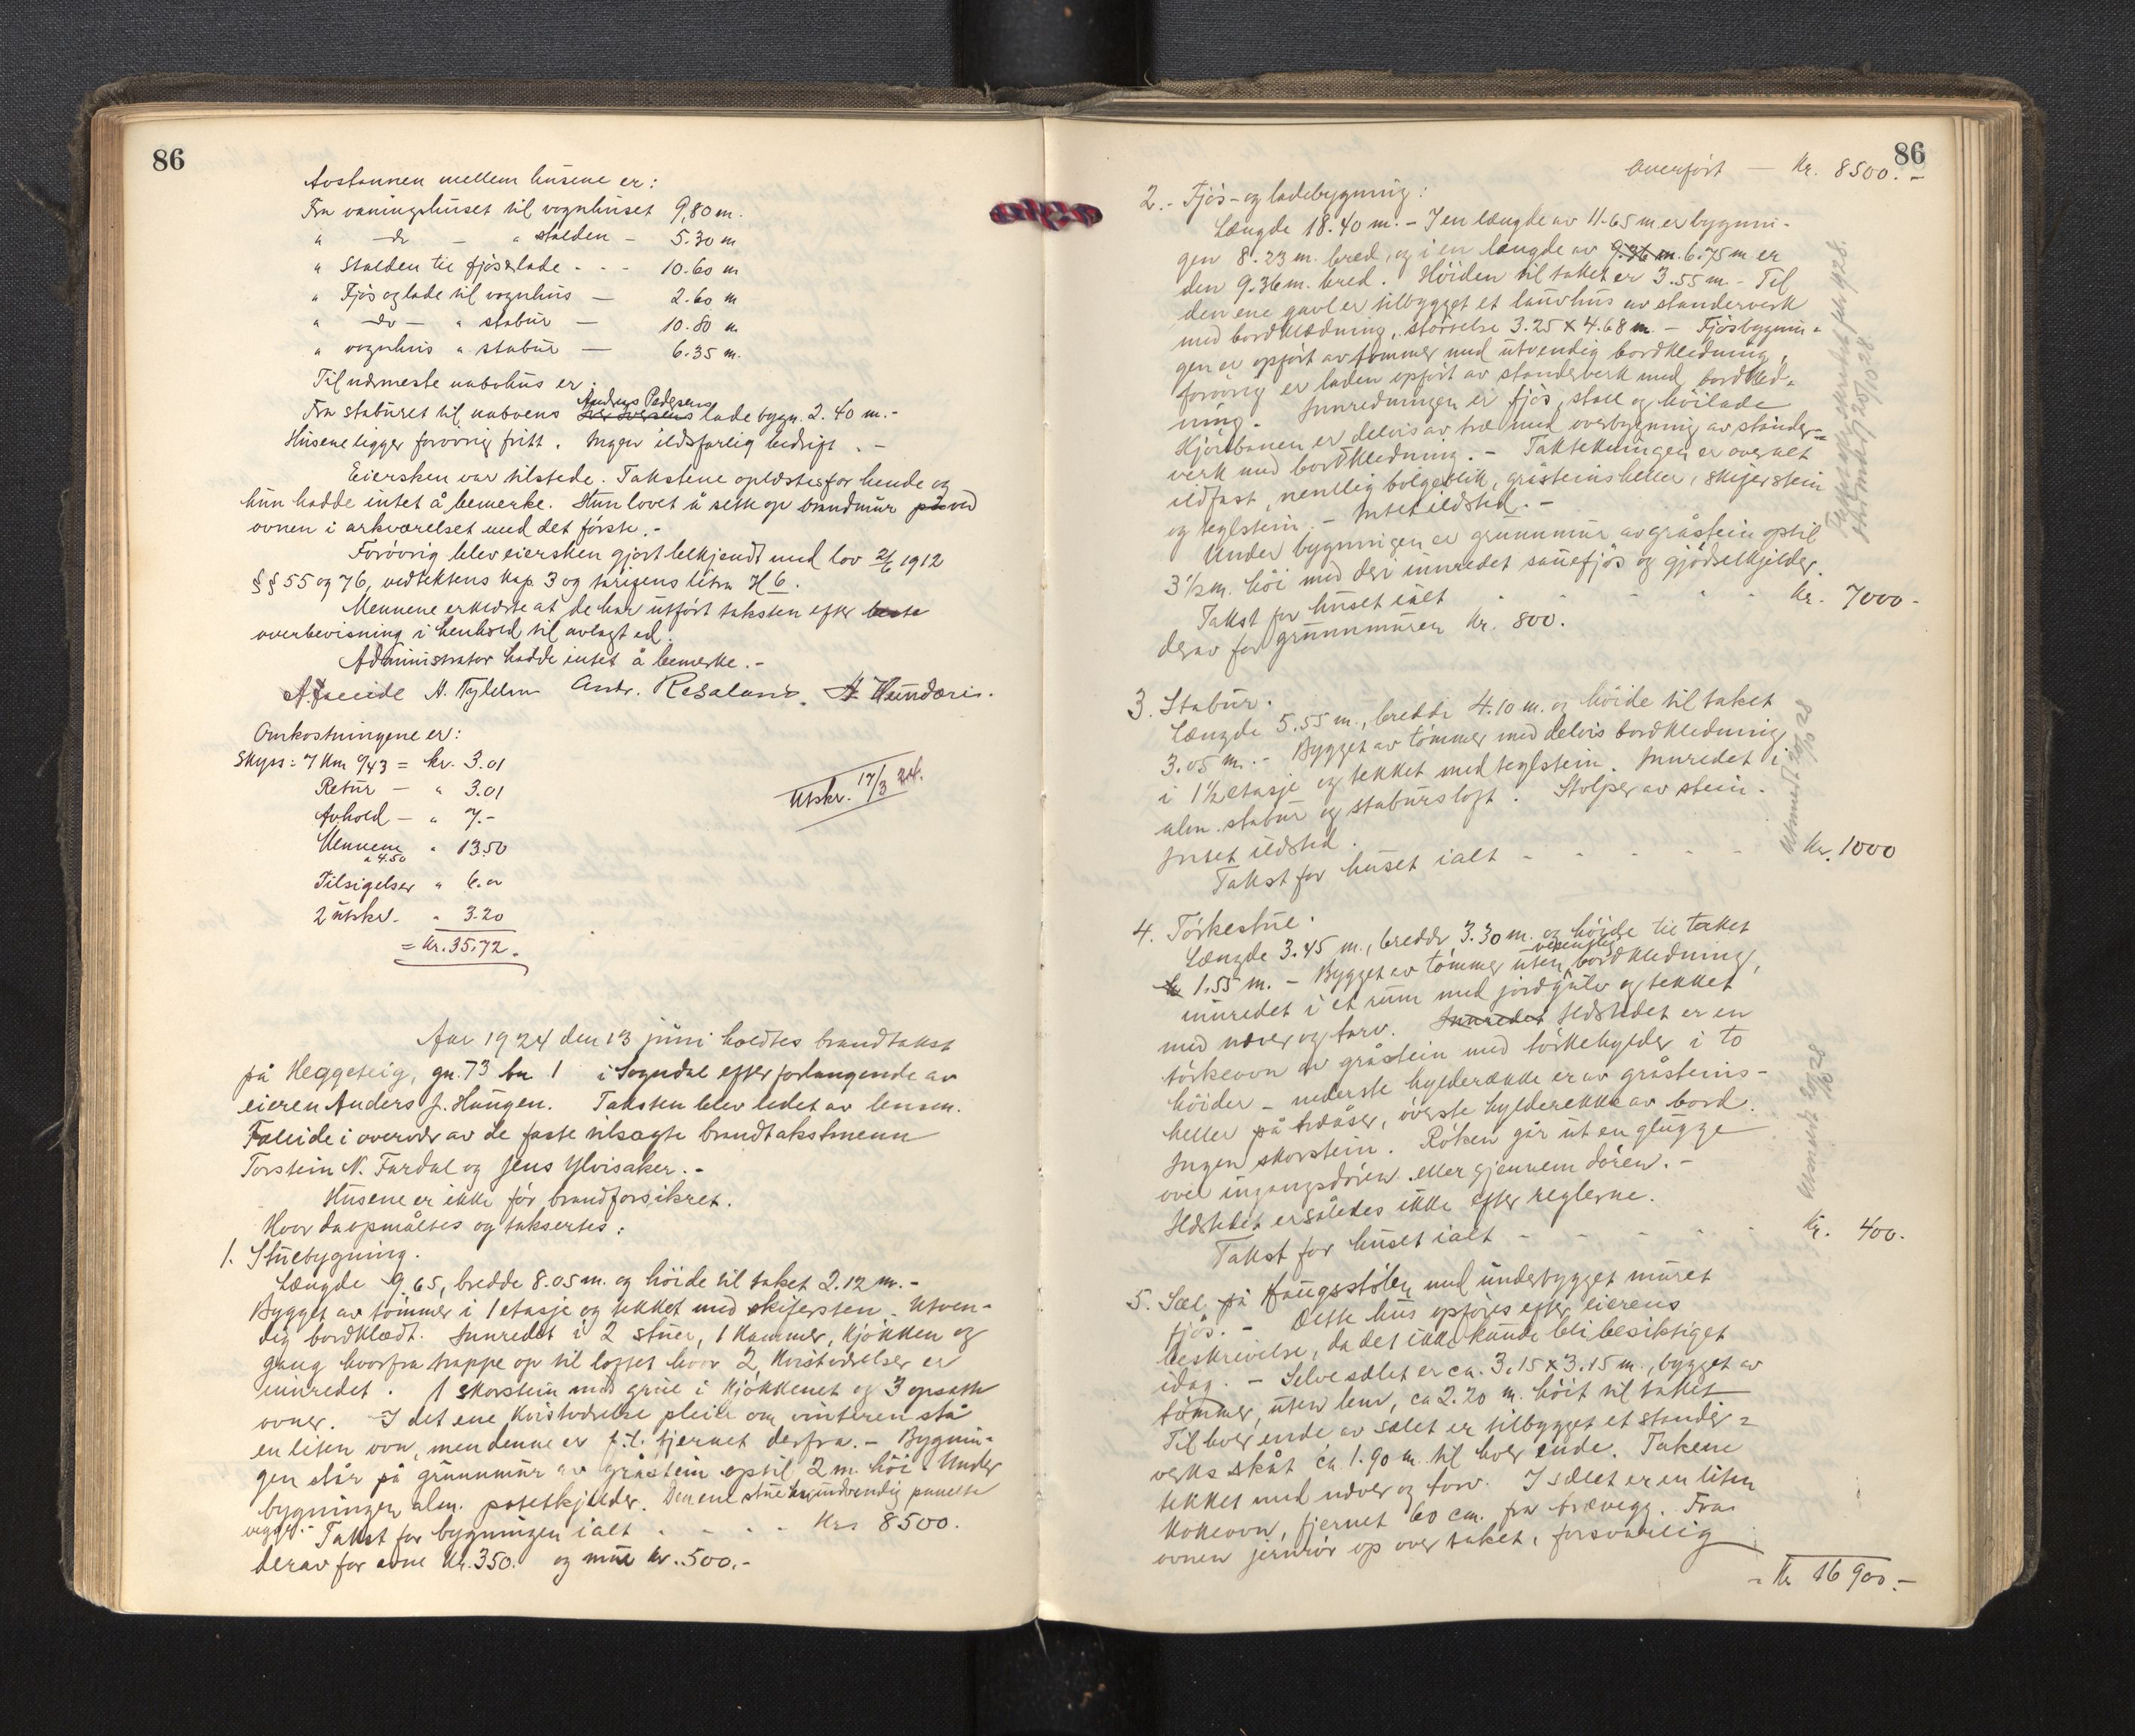 86
Avstannen mellem husene er:
Fra våningshuset til vognhuset 9,80 m.
" -do- - " stalden - 5.30 m
" Stalden til fjös & lade - - - 10.60 m
" Fjös og lade til vognhus — 2.60 m
" -do- " stabur — 10.80 m
" vognhus " stabur — 6.35 m.
Til nærmeste nabohus er:
Anders Pedersens
Fra staburet til naboens lade bygn. 2.40 m.-
Husene ligger forövrig fritt. Ingen ildsfarlig bedrift. -
Eiersken var tilstede. Takstene oplæstes for hende og
hun hadde intet å bemerke. Hun lovet å sette op brandmur på ved
ovnen i arkværelset med det förste.-
Forövrig blev eiersken gjort bekjendt med lov 21/6 1912
§§ 55 og 76, vedtektens kap. 3 og tariffens litra H 6.
Mennene erklærte at de har utfört taksten efter beste
overbevisning i henhold til avlagt ed.
Administrator hadde intet å bemerke.-
A. Faleide A. Tylden Andr. Resaland.
Omkostningene er:
Skyss: 7 Km 0/43 = kr. 3.01
Retur — " 3.01
Avhold — " 7.-
Mennene " 13.50
a 4.50
Tilsigelser " 6.00
2 utskr. " 3.20
= Kr. 35.72.
Utskr. 17/3 24.
Aar 1924 den 13 juni holdtes brandtakst
på Heggeteig, gn. 73 bn 1 i Sogndal efter forlangende av
eieren Anders J. Haugen. Taksten blev ledet av lensm.
Faleide i overvær av de faste tilsagte brandtakstmenn
Torstein N. Fardal og Jens Ylvisaker.-
Husene er ikke för brandforsikret.
Hvor da opmåltes og taksertes:
1. Stuebygning.
Længde 9.65, bredde 8.05 m. og höide til taket 2.12 m.-
Bygget av tömmer i 1 etasje og tekket med skifersten. Utven-
dig bordklædt. Innredet i 2 stuer, 1 kammer, kjökken og
gang hvorfra trappe op til loftet hvor 2 kvistværelser er
innredet. 1 skorstein med grue i kjökkenet og 3 opsatte
ovner. I det ene kvistværelse pleier om vinteren stå
en liten ovn, men denne er p.t. fjernet derfra.- Bygnin-
gen står på grunnmur av gråstein optil 2 m. höi. Under
bygningen alm. potetkjelder. Den ene stue har indvendig panelte
vegger.- Takst for bygningen ialt - - - - Kr. 8500.
derav for ovne Kr. 350. og mur kr. 500.-
86
Overfört — Kr. 8500.-
2.- Fjös- og ladebygning:
Længde 18.40 m.- I en længde av 11.65 m er bygnin-
gen 8.23 m. bred, og i en længde av 9.36 m. 6.75 m er
den 9.36 m. bred. Höiden til taket er 3.55 m.- Til
den ene gavl er tilbygget et lauvhus av standerverk
med bordklædning, störrelse 3.25 x 4.68 m.- Fjösbygnin-
gen er opfört av tömmer med utvendig bordkledning,
forövrig er laden opfört av standerverk med bordkled-
ning. Innredningen er fjös, stall og höilade
Kjörbanen er delvis av træ med overbygning av stander-
verk med bordkledning.- Taktekningen er overalt
ildfast, nemlig bölgeblik, gråsteinsheller, skiferstein
og teglstein.- Intet ildsted.-
Under bygningen er grunnmur av gråstein optil
3 1/2 m. höi med deri innredet sauefjös og gjödselkjelder.
Takst for huset ialt - - - - - - Kr. 7000.-
derav for grunnmuren Kr. 800.
3. Stabur.
Længde 5.55 m., bredde 4.10 m. og höide til taket
3.05 m.- Bygget av tömmer med delvis bordkledning
i 1 1/2 etasje og tekket med teglstein. Innredet i
alm. stabur og stabursloft. Stolper av stein.
Intet ildsted.
Takst for huset ialt - - - - - Kr. 1000
Utmeldt 20/10 28
4. Törkestue.
Længde 3.45 m., bredde 3.30 m. og höide til taket
1.55 m.- Bygget av tömmer uten vesentlig bordkledning,
innredet i et rum med jordgulv og tekket
med næver og torv. Innredet Ildstedet er en
törkeovn av gråstein med törkehylder i to
höider - nederste hylderække er av gråsteins-
heller på træåser, överste hylderekke av bord.
Ingen skorstein. Röken går ut en glugge
over ingangsdören eller gjennem dören.-
Ildstedet er således ikke efter reglerne.
Takst for huset ialt - - - - - Kr. 400.
Utmeldt 20/10 28
5. Sæl på Haugsstölen med underbygget muret
fjös.- Dette hus opföres efter eierens
beskrivelse, da det ikke kunde bli besiktiget
idag.- Selve sælet er ca. 3.15 x 3.15 m., bygget av
tömmer, uten lem, ca 2.20 m. höit til taket
Til hver ende av sælet er tilbygget et stander-
verks skåt ca 1.90 m. til hver ende. Takene
tekket med næver og torv. I sælet er en liten
kokeovn, fjernet 60 cm. fra trævegg. Fra
ovnen jernrör op over taket, forsvarlig
= Kr 16 900.-